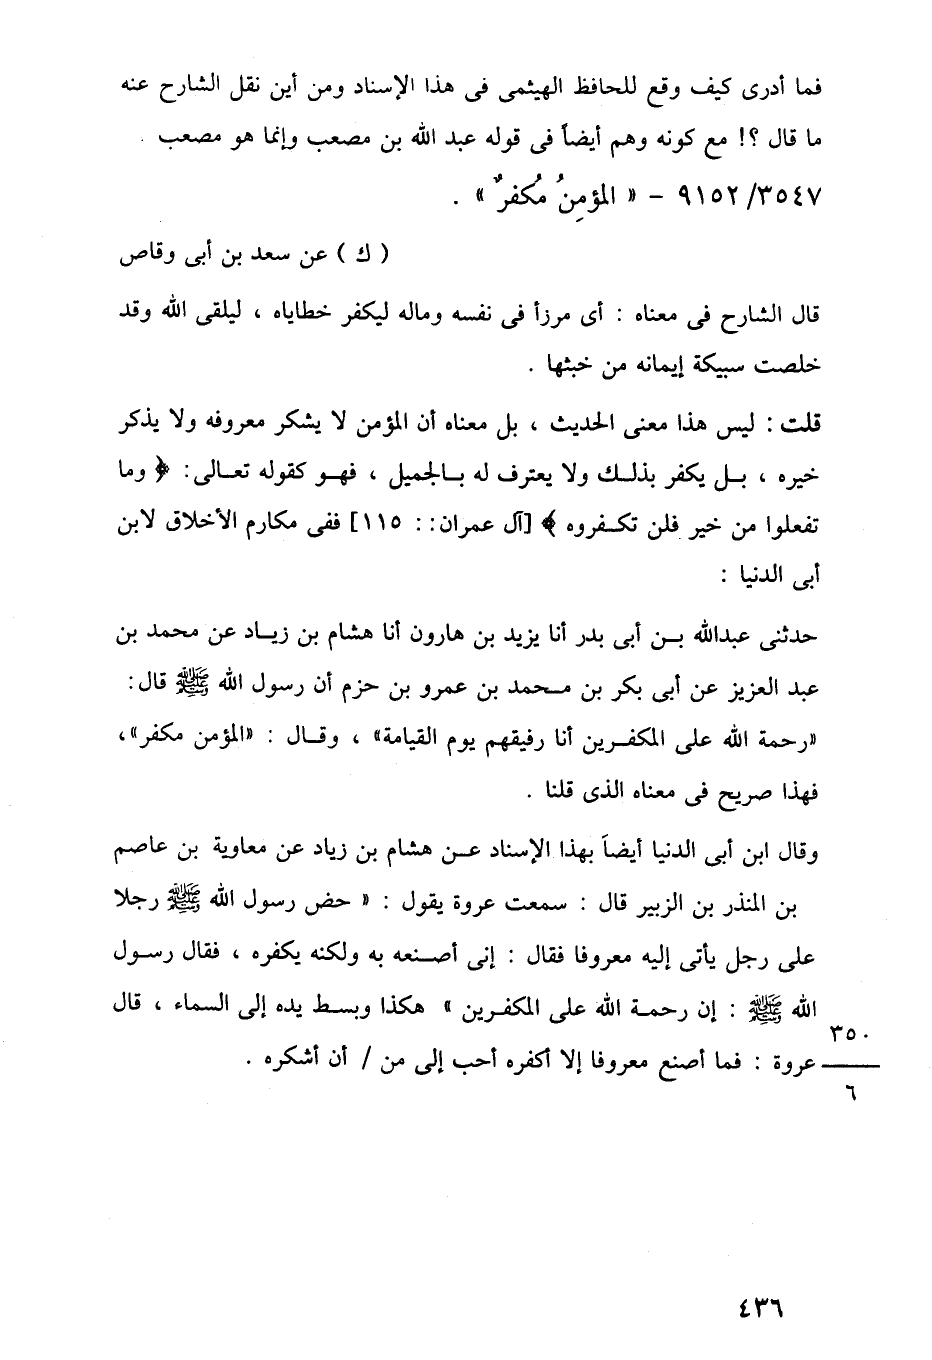 فما أدرى كيف وقع للحافظ الهيثمى فى هذا الإسناد ومن أين نقل الشارح عنه
ما قال ؟! مع كونه وهم أيضاً فى قوله عبد الله بن مصعب وإنما هو مصعب .
٩١٥٢/٣٥٤٧ – « المؤمِنُ مُكفرٌ » .
( ك ) عن سعد بن أبى وقاص
قال الشارح فى معناه : أى مرزأ فى نفسه وماله ليكفر خطاياه ، ليلقى الله وقد
خلصت سبيكة إيمانه من خبثها .
قلت : ليس هذا معنى الحديث ، بل معناه أن المؤمن لا يشكر معروفه ولا يذكر
خيره ، بـل يكفر بذلـك ولا يعترف له بـالجميل ، فهـو كقوله تعـالى: ﴿ وما
تفعلوا من خير فلن تكـفروه ﴾ [آل عمران: : ١١٥] ففى مكارم الأخلاق لابن
أبى الدنيا :
حدثنى عبدالله بـن أبى بدر أنا يزيد بن هارون أنا هشام بن زيـاد عن محمد بن
عبد العزيز عن أبى بكر بن محمد بن عمرو بن حزم أن رسول الله ﷺ قال:
«رحمة الله على المكفـرين أنا رفيقهم يوم القيامة» ، وقـال : «المؤمن مكفر»،
فهذا صريح فى معناه الذى قلنا .
وقال ابن أبى الدنيا أيضاً بهذا الإسناد عـن هشام بن زياد عن معاوية بن عاصم
بن المنذر بن الزبير قال : سمعت عروة يقول : « حض رسول الله ﷺ رجلا
على رجل يأتى إليه معروفا فقال : إنى أصـنعه به ولكنه يكفره ، فقال رسـول
الله ﷺ : إن رحمـة الله على المكفـرين » هكذا وبسـط يده إلى السماء ، قال
٣٥٠
عروة : فما أصنع معروفا إلا أكفره أحب إلى من / أن أشكره .
٦
٤٣٦